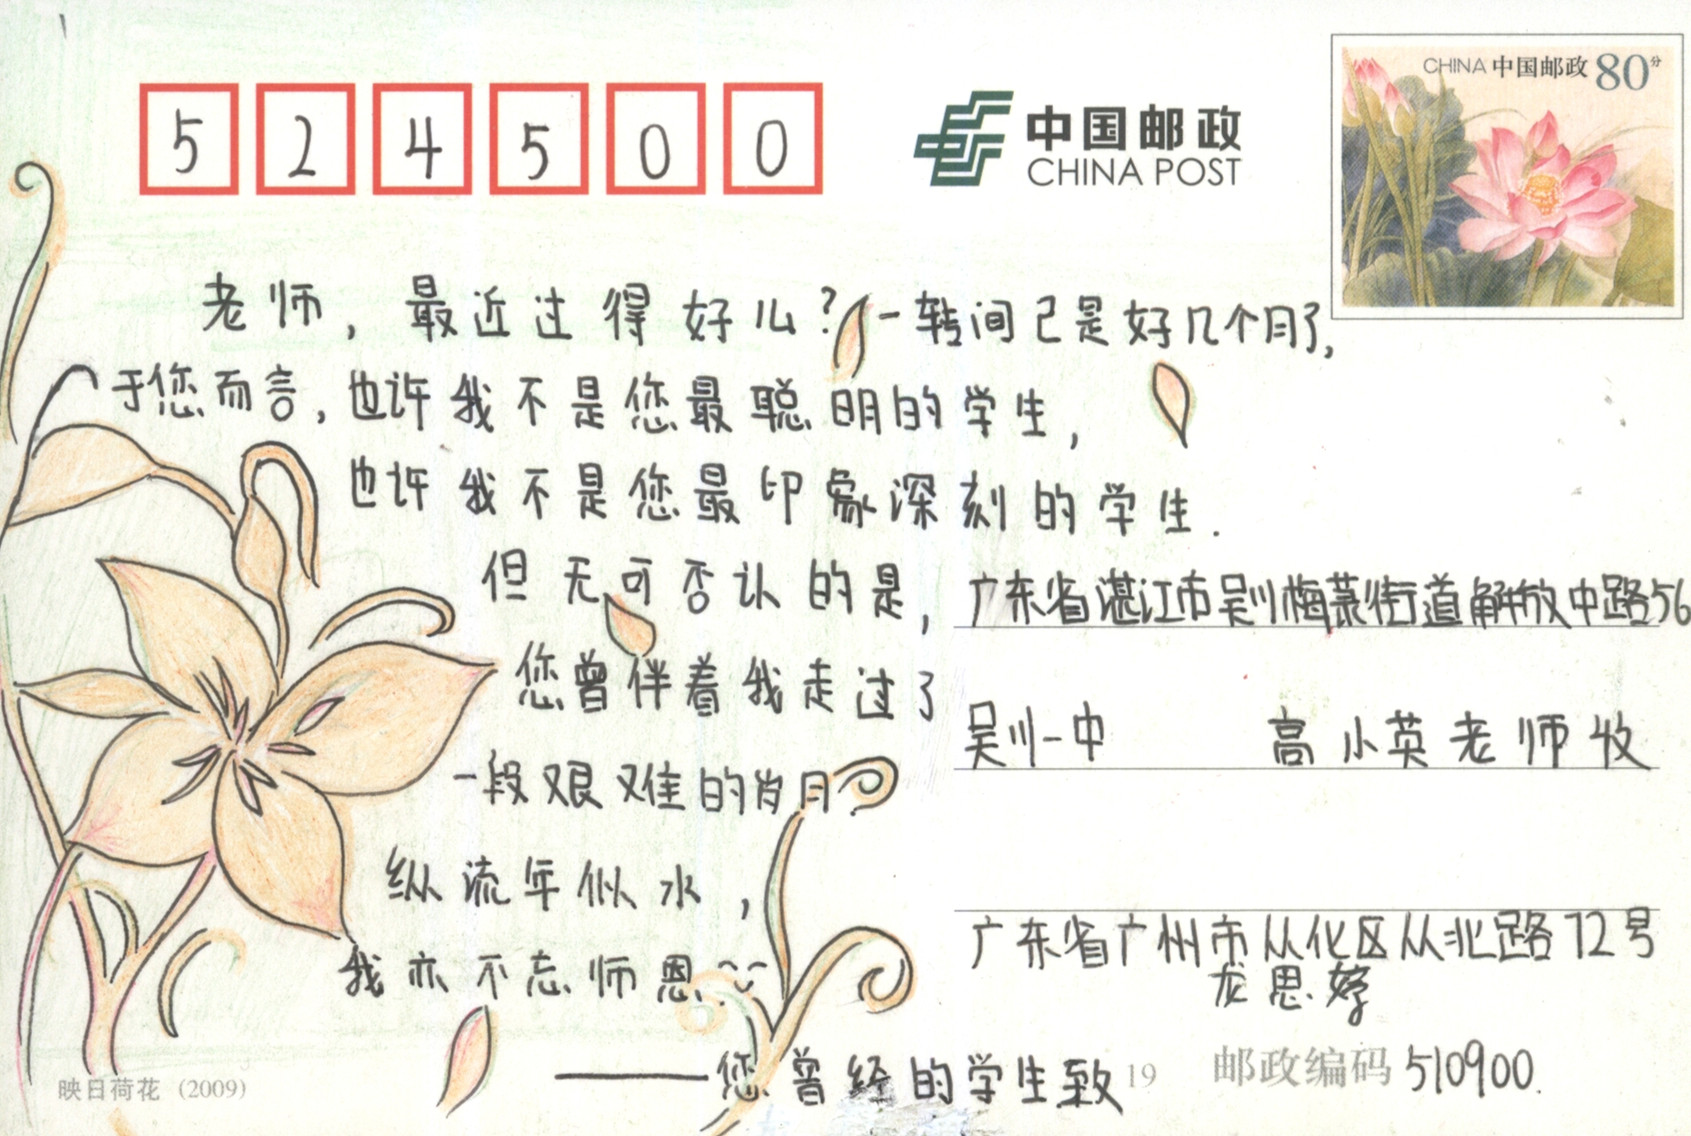 524500
中国邮政
CHINA POST
CHINA 中国邮政 80分
老师，最近过得好么？一转间已是好几个月了，
于您而言，也许我不是您最聪明的学生，
也许我不是您最印象深刻的学生.
但无可否认的是，
您曾伴着我走过了
一段艰难的岁月
纵流年似水，
我亦不忘师恩~~
——您曾经的学生致
广东省湛江市吴川梅菉街道解放中路56
吴川一中 高小英老师收
广东省广州市从化区从北路72号
龙思婷
19
邮政编码 510900.
映日荷花 (2009)